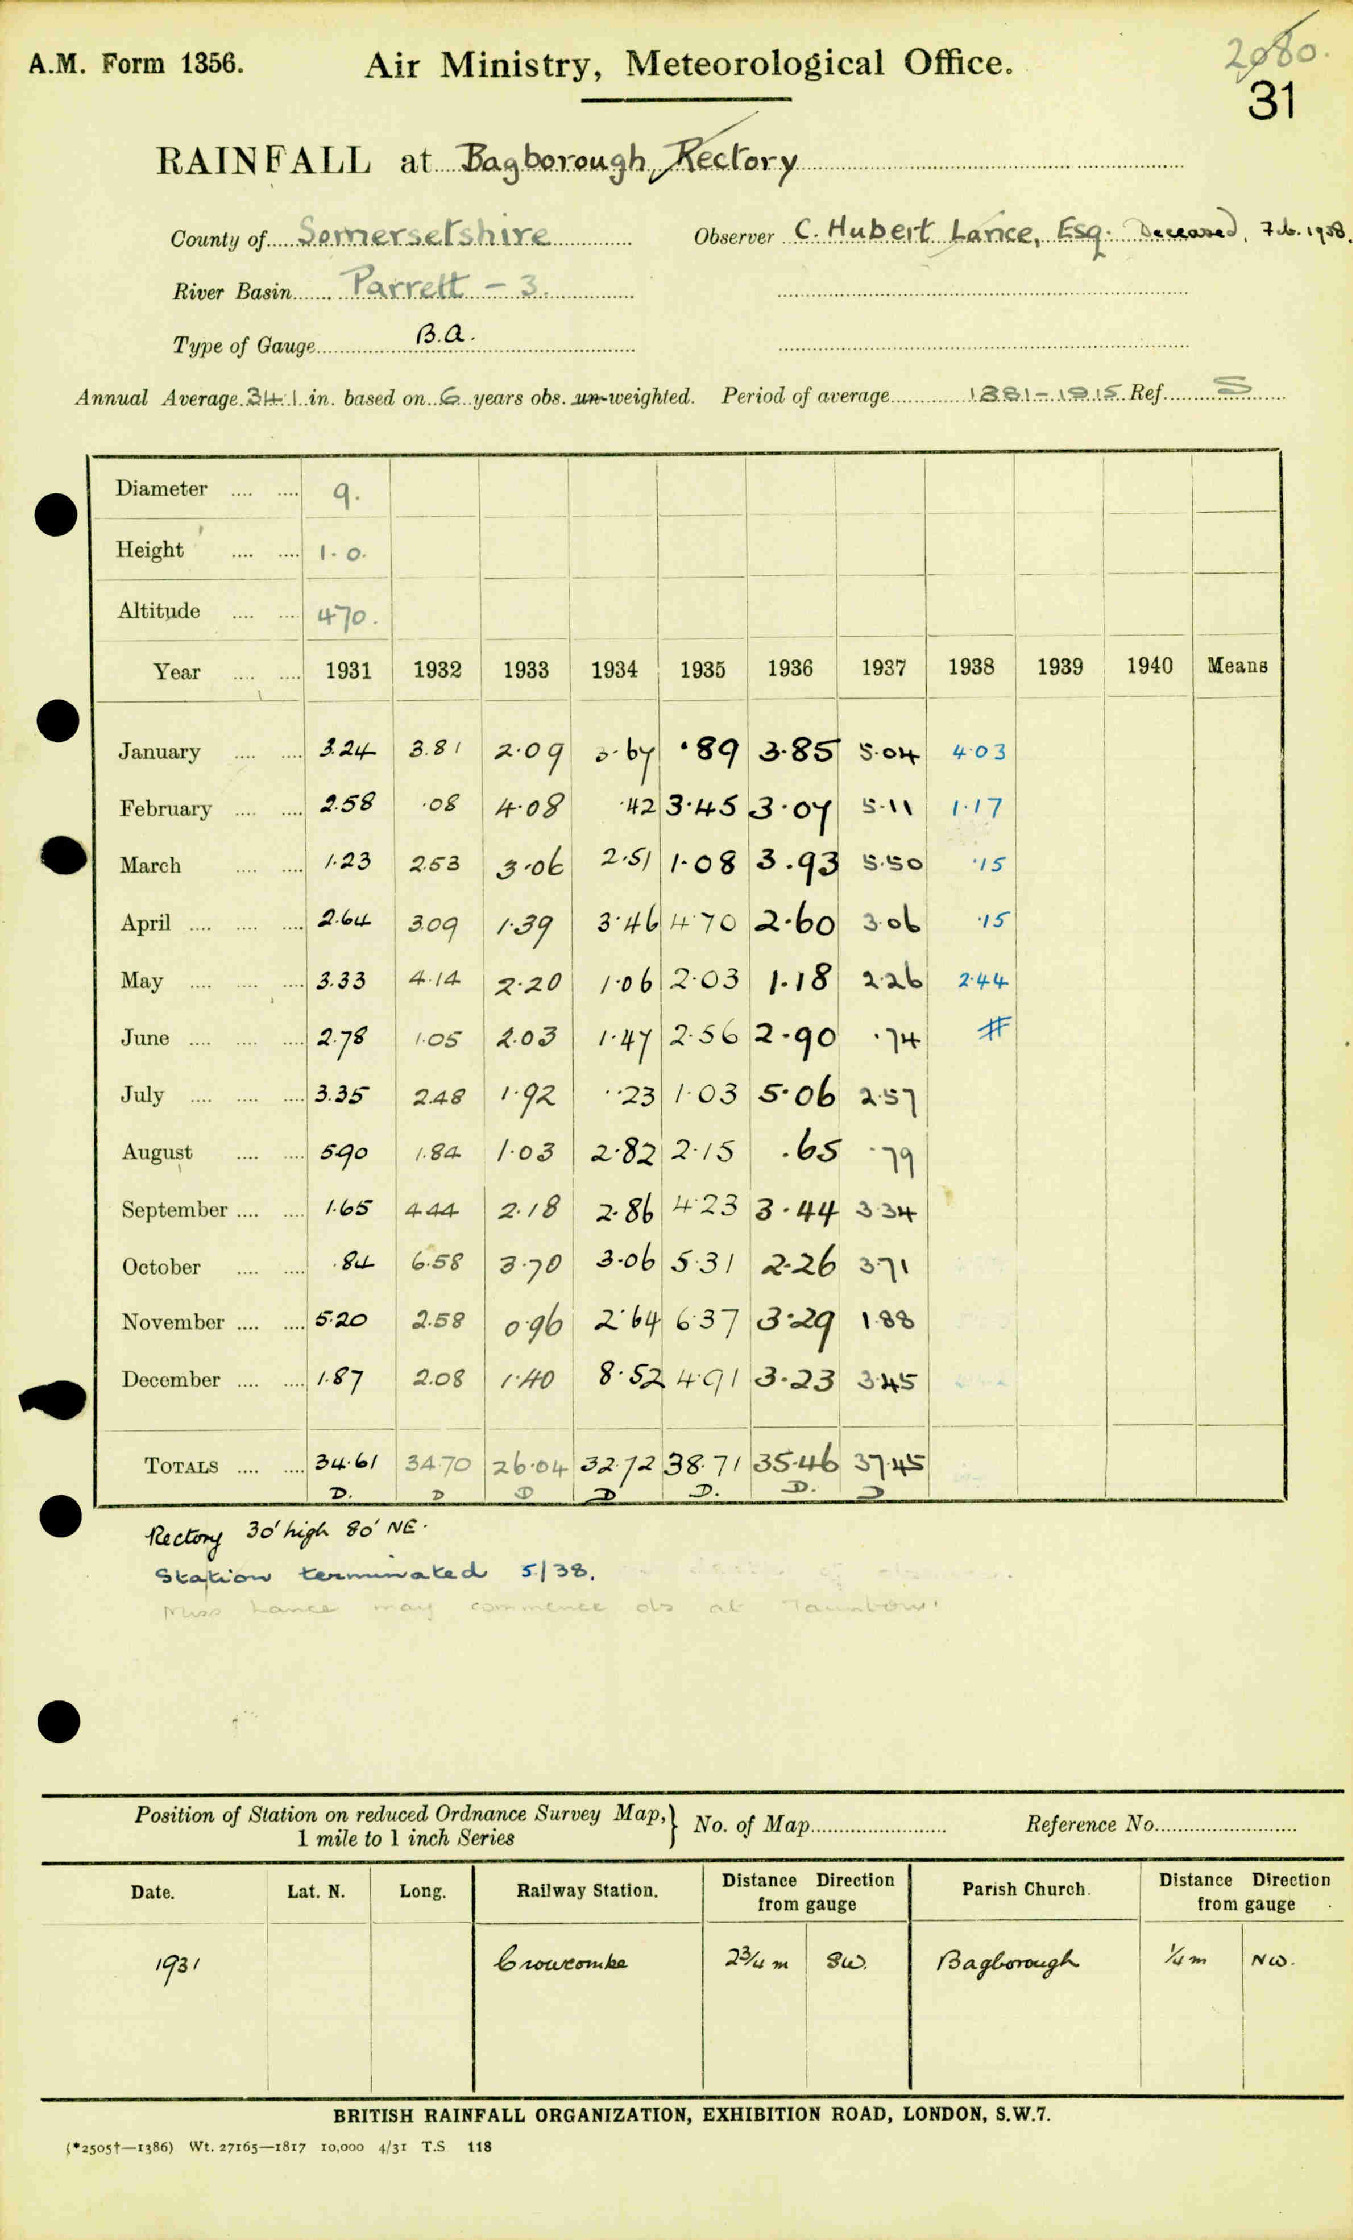 2080.
A.M. Form 1356. Air Ministry, Meteorological Office.
31
RAINFALL at Bagborough, Rectory
County of Somersetshire Observer C. Hubert Lance, Esq. Deceased, Feb. 1938.
River Basin Parrett - 3.
Type of Gauge B.A.
Annual Average 34.1 in. based on 6 years obs. un-weighted. Period of average 1881-1915 Ref. S
Diameter .... .... 9.
Height .... .... 1.0.
Altitude .... .... 470.
Year .... .... 1931 1932 1933 1934 1935 1936 1937 1938 1939 1940 Means
January .... .... 3.24 3.81 2.09 3.67 .89 3.85 5.04 4.03
February .... .... 2.58 .08 4.08 .42 3.45 3.07 5.11 1.17
March .... .... 1.23 2.53 3.06 2.51 1.08 3.93 5.50 .15
April .... .... .... 2.64 3.09 1.39 3.46 4.70 2.60 3.06 .15
May .... .... .... 3.33 4.14 2.20 1.06 2.03 1.18 2.26 2.44
June .... .... .... 2.78 1.05 2.03 1.47 2.56 2.90 .74 #
July .... .... .... 3.35 2.48 1.92 .23 1.03 5.06 2.57
August .... .... 5.90 1.84 1.03 2.82 2.15 .65 .79
September .... .... 1.65 4.44 2.18 2.86 4.23 3.44 3.34
October .... .... .84 6.58 3.70 3.06 5.31 2.26 3.71
November .... .... 5.20 2.58 0.96 2.64 6.37 3.29 1.88
December .... .... 1.87 2.08 1.40 8.52 4.91 3.23 3.45
TOTALS .... .... 34.61 34.70 26.04 32.72 38.71 35.46 37.45
D. D D D D. D. D
Rectory 30' high 80' NE.
Station terminated 5/38.
Miss Lance may commence obs at Taunton
Position of Station on reduced Ordnance Survey Map, } No. of Map Reference No.
1 mile to 1 inch Series
Date. Lat. N. Long. Railway Station. Distance Direction from gauge Parish Church. Distance Direction from gauge
1931 Crowcombe 2¾ m SW. Bagborough ¼ m NW.
BRITISH RAINFALL ORGANIZATION, EXHIBITION ROAD, LONDON, S.W.7.
(*2505†—1386) Wt. 27165—1817 10,000 4/31 T.S 118